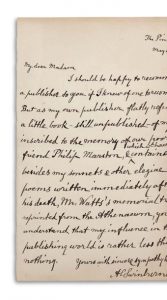 The Pines
May
My dear Madam
I should be happy to recom
a publisher to you if I knew of one to recom
But as my own publisher flatly refu
a little book still unpublished of m
inscribed to the memory of our poor
friend Philip Marston, & contain
which I have
besides my sonnets & other elegiac
poems written immediately af
his death, Mr. Watts's memorial t
reprinted from the Athenaeum, you
understand that my influence in
publishing world is rather less th
nothing.
Yours with sincere sympathy
A C Swinburne